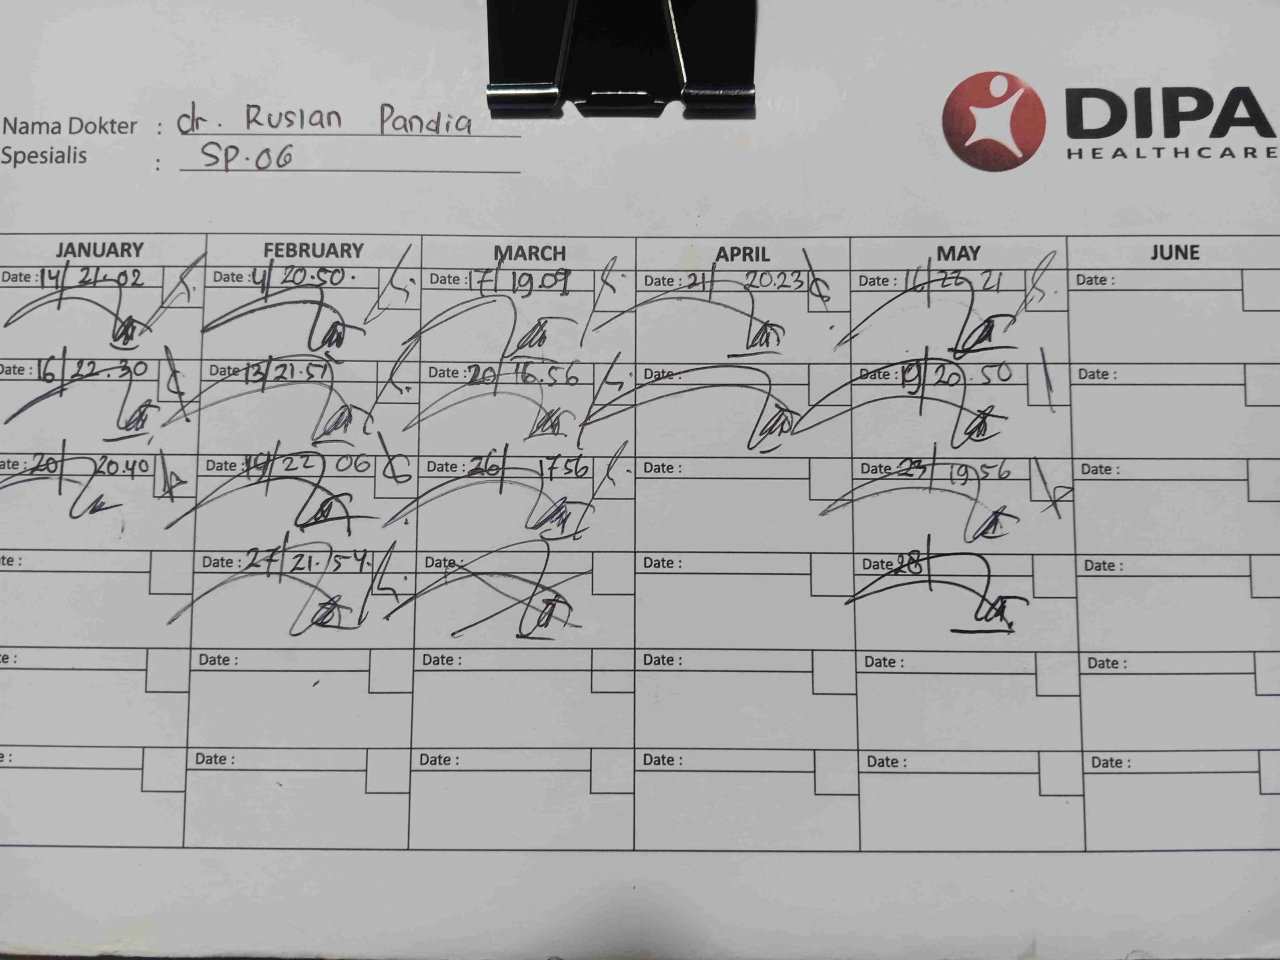 Nama Dokter : dr. Ruslan Pandia
DIPA
HEALTHCARE
Spesialis : SP.OG
JANUARY FEBRUARY MARCH APRIL MAY JUNE
Date : 14/ 21.02 Date : 4/ 20.50. Date : 17/ 19.09 Date : 21/ 20.23 Date : 16/ 22 21 Date :
Date : 16/ 22.30 Date : 13/ 21.51 Date : 20/ 16.56 Date : Date : 19/ 20.50 Date :
ate : 20/ 20.40 Date : 19/ 22 06 Date : 26/ 1756 Date : Date : 23/ 19 56 Date :
te : Date : 27/ 21.54. Date : Date : Date : 28/ Date :
e : Date : Date : Date : Date : Date :
e : Date : Date : Date : Date : Date :